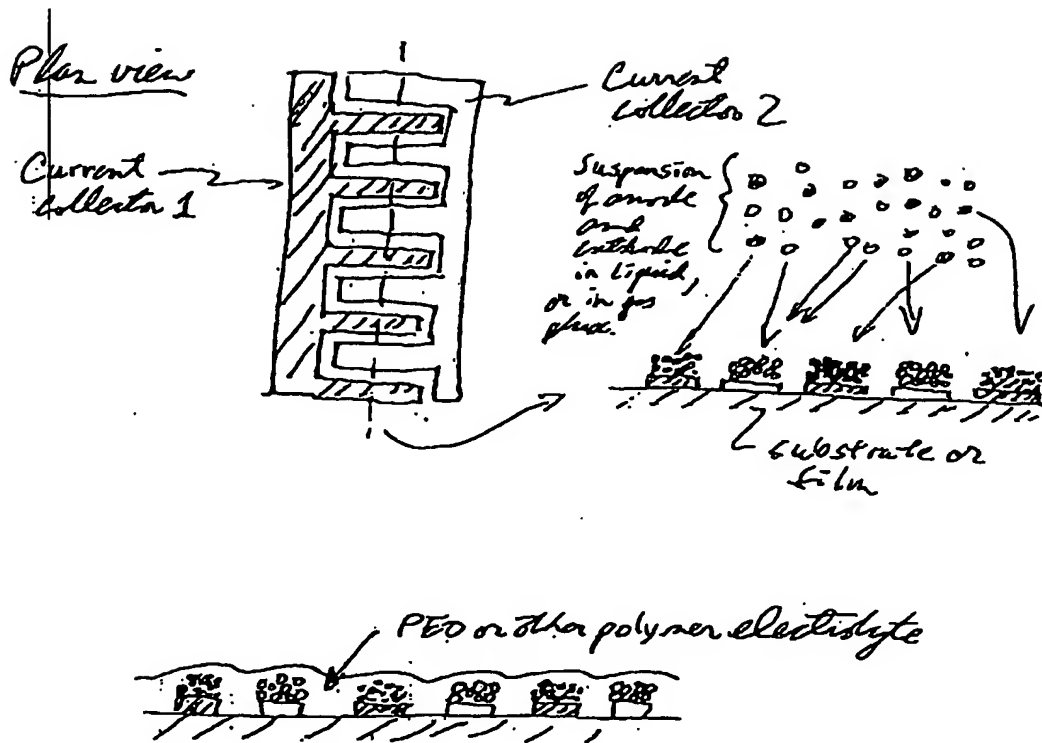 Plan view
Current
collector 1
Current
collector 2
Suspension
of anode
and
cathode
in liquid,
or in gas
flux.
substrate or
film
PEO or other polymer electrolyte